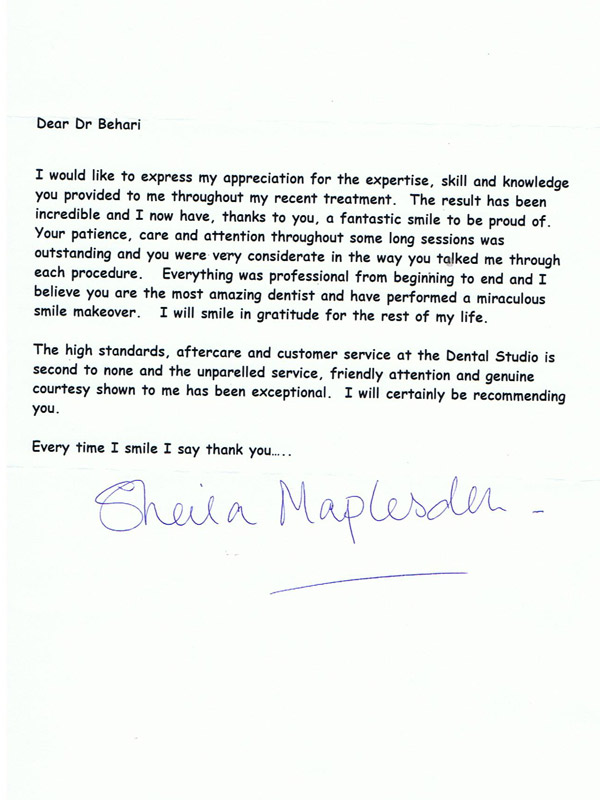 Dear Dr Behari
I would like to express my appreciation for the expertise, skill and knowledge
you provided to me throughout my recent treatment. The result has been
incredible and I now have, thanks to you, a fantastic smile to be proud of.
Your patience, care and attention throughout some long sessions was
outstanding and you were very considerate in the way you talked me through
each procedure. Everything was professional from beginning to end and I
believe you are the most amazing dentist and have performed a miraculous
smile makeover. I will smile in gratitude for the rest of my life.
The high standards, aftercare and customer service at the Dental Studio is
second to none and the unparelled service, friendly attention and genuine
courtesy shown to me has been exceptional. I will certainly be recommending
you.
Every time I smile I say thank you.....
Sheila Maplesden -